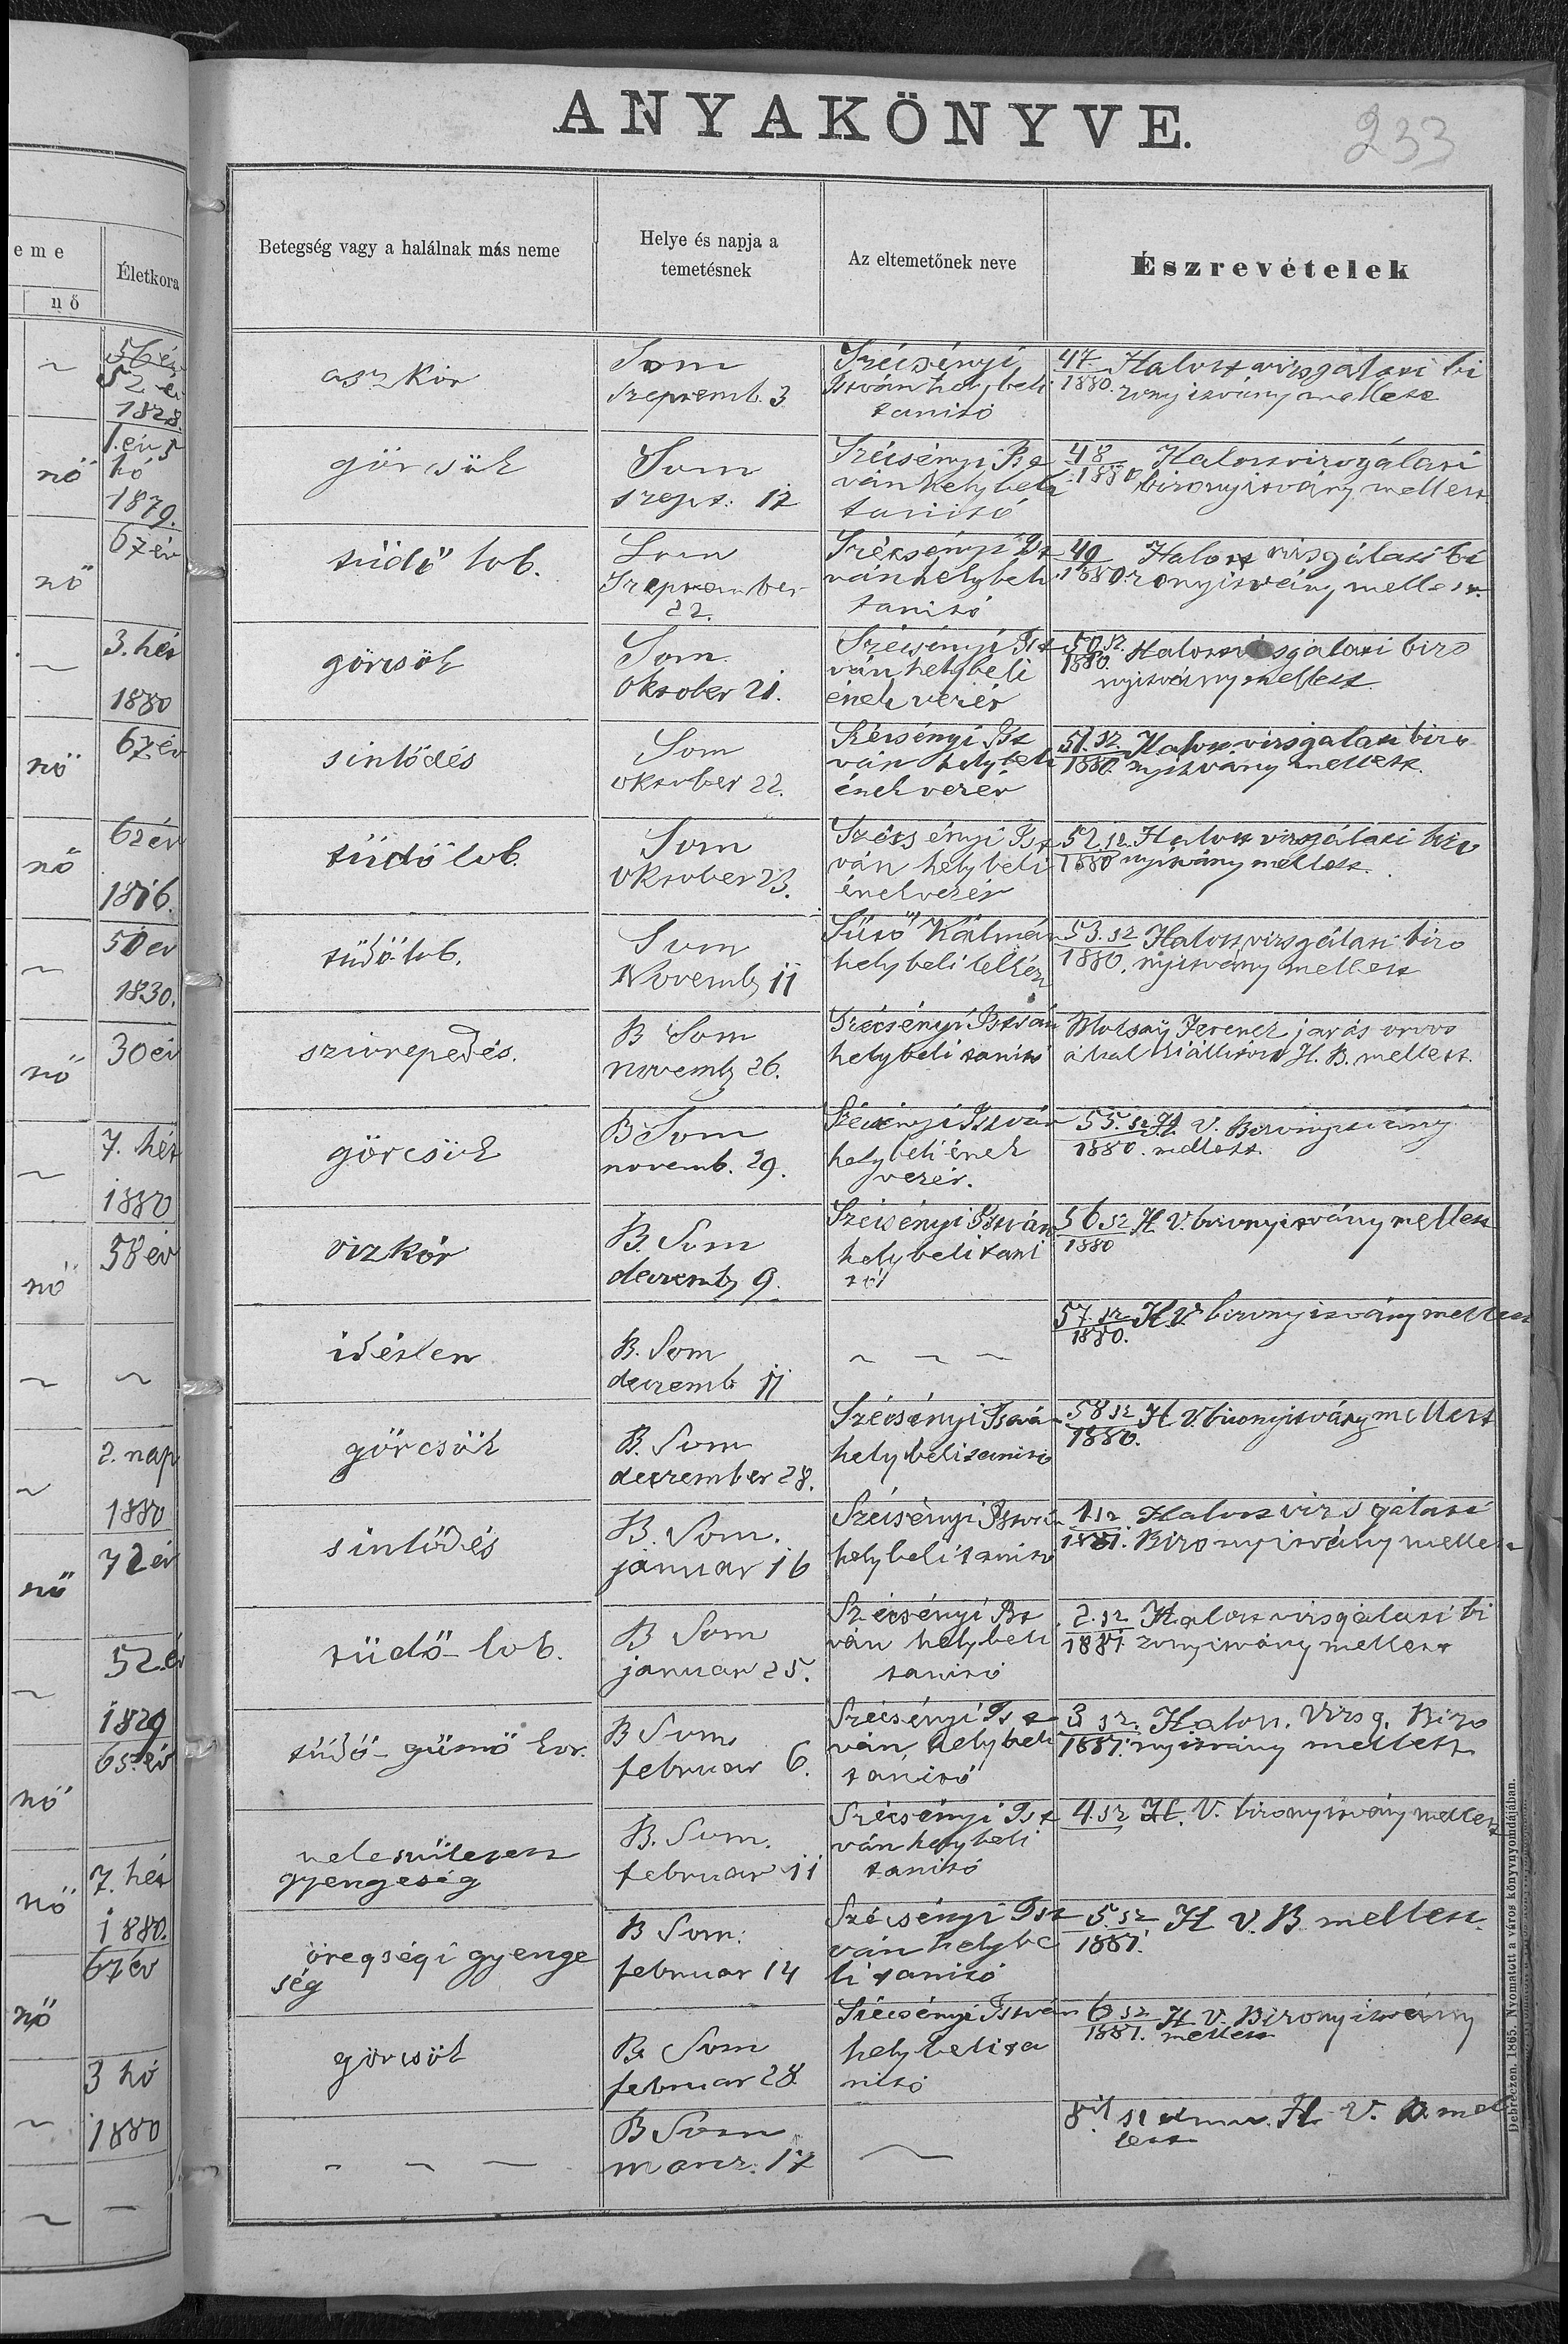 ANYAKÖNYVE.
233
eme
nő
Életkora
Betegség vagy a halálnak más neme
Helye és napja a
temetésnek
Az eltemetőnek neve
Észrevételek
~
56 év
52 év
1828.
aszkór
Som
Szeptemb. 3
Szécsényi
István helybeli
tanító
47.
1880.
Halott visgálati bi
zonyitvány mellett
nő
1. év 5
hó
1879.
görcsök
Som
szept. 12
Szécsényi Ist
ván helybeli
tanitó
48
1880
Halottvisgálati
bizonyitvány mellett
nő
67 év
tüdő lob.
Som
September
22.
Szécsényi Ist
ván helybeli
tanitó
49
1880.
Halott visgálati bi
zonyitvány mellett
~
3. hét
1880
görcsök
Som.
Oktober 21.
Szécsényi Ist
ván helybeli
énekvezér
50. sz.
1880.
Halottvisgálati bizo
nyitvány mellett.
nő
67 év
sintődés
Som
oktober 22.
Szécsényi Ist
ván helybeli
énekvezér
51. sz.
1880.
Halott visgalati bizo
nyitvány mellett.
nő
62 év
1816.
tüdő lob.
Som
Oktober 23.
Szécsényi Ist
ván helybeli
énekvezér
52 sz.
1880
Halott visgálati bizo
nyitvány mellett.
~
50 ev
1830.
tüdő lob.
Som
Novemb. 11
Sütő Kálmán
helybeli lelkész
53. sz
1880.
Halott visgálati bizo
nyitvány mellett
nő
30 év
szivrepedés.
B Som
novemb 26.
Szécsényi István
helybeli tanitó
Ferencz járás orvos
által kiállitott H. B. mellett.
~
7. hét
1880
görcsök
B Som
novemb. 29.
Szécsényi István
helybeli ének
vezér.
55. sz
1880.
H. V. Bizonyitvány
mellett.
nő
58 év
vizkór
B. Som
decemb 9.
Szécsényi István
helybeli tani
tó
56 sz
1880
H. V. bizonyitvány mellett
~
~
idétlen
B. Som
decemb 11
~ ~ ~
57. sz
1880.
H. V. bizonyitvány mellett
~
2. nap
1880
görcsök
B. Som
december 28.
Szécsényi István
helybeli tanitó
58 sz
1880.
H V. bizonyitvány mellett
nő
72 év
sintődés
B. Som.
január 16
Szécsényi István
helybeli tanitó
1. sz
1881.
Halott visgálati
Bizonyitvány mellett
~
52. év
1829
tüdő-lob.
B Som
januar 25.
Szécsényi Ist
ván helybeli
tanitó
2. sz
1881
Halott visgálati bi
zonyitvány mellett
nő
65. év
tüdő-gümő kor.
B Som
februar 6.
Szécsényi Ist
ván helybeli
tanitó
3 sz.
1881.
Halott. Visg. Bizo
nyitvány mellett
nő
7. hét
1880.
vele született
gyengeség
B. Som.
februar 11
Szécsényi Ist
ván helybeli
tanitó
4. sz
H. V. bizonyitvány mellett
nő
67 év
öregségi gyenge
ség
B Som.
februar 14
Szécsényi Ist
ván helybe
li tanitó
5. sz
1881.
H V. B mellett.
~
3 hó
1880
görcsök
B. Som
februar 28.
Szécsényi István
helybeli ta
nitó
6 sz
1881.
H V. Bizonyitvány
mellett
~
—
~ ~ —
B Som
marcz. 17
~
8 sz H. V. B. mel
lett
Debreczen, 1865. Nyomatott a város könyvnyomdájában.